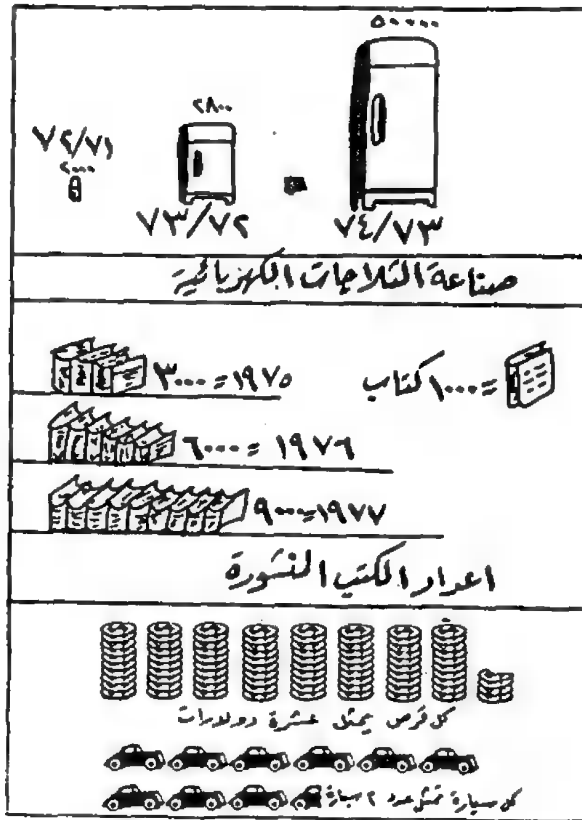 ٥٠٠٠٠
٢٨٠٠
٧٢/٧١
٢٠٠٠
٧٣/٧٢
٧٤/٧٣
صناعة الثلاجات الكهربائية
١٩٧٥ = ٣٠٠٠
= ١٠٠٠ كتاب
١٩٧٦ = ٦٠٠٠
١٩٧٧ = ٩٠٠٠
اعداد الكتب المنشورة
كل قرص يمثل عشرة دولارات
كل سيارة تمثل عدد ٢ سيارة